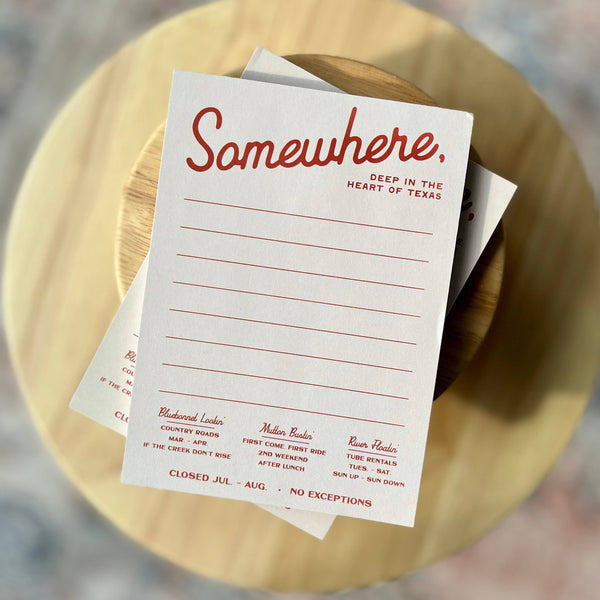 Somewhere,
DEEP IN THE
HEART OF TEXAS
Bluebonnet Lookin'
COUNTRY ROADS
MAR. - APR
IF THE CREEK DON'T RISE
Mutton Bustin'
FIRST COME, FIRST RIDE
2ND WEEKEND
AFTER LUNCH
River Floatin'
TUBE RENTALS
TUES. - SAT.
SUN UP - SUN DOWN
CLOSED JUL. - AUG. • NO EXCEPTIONS